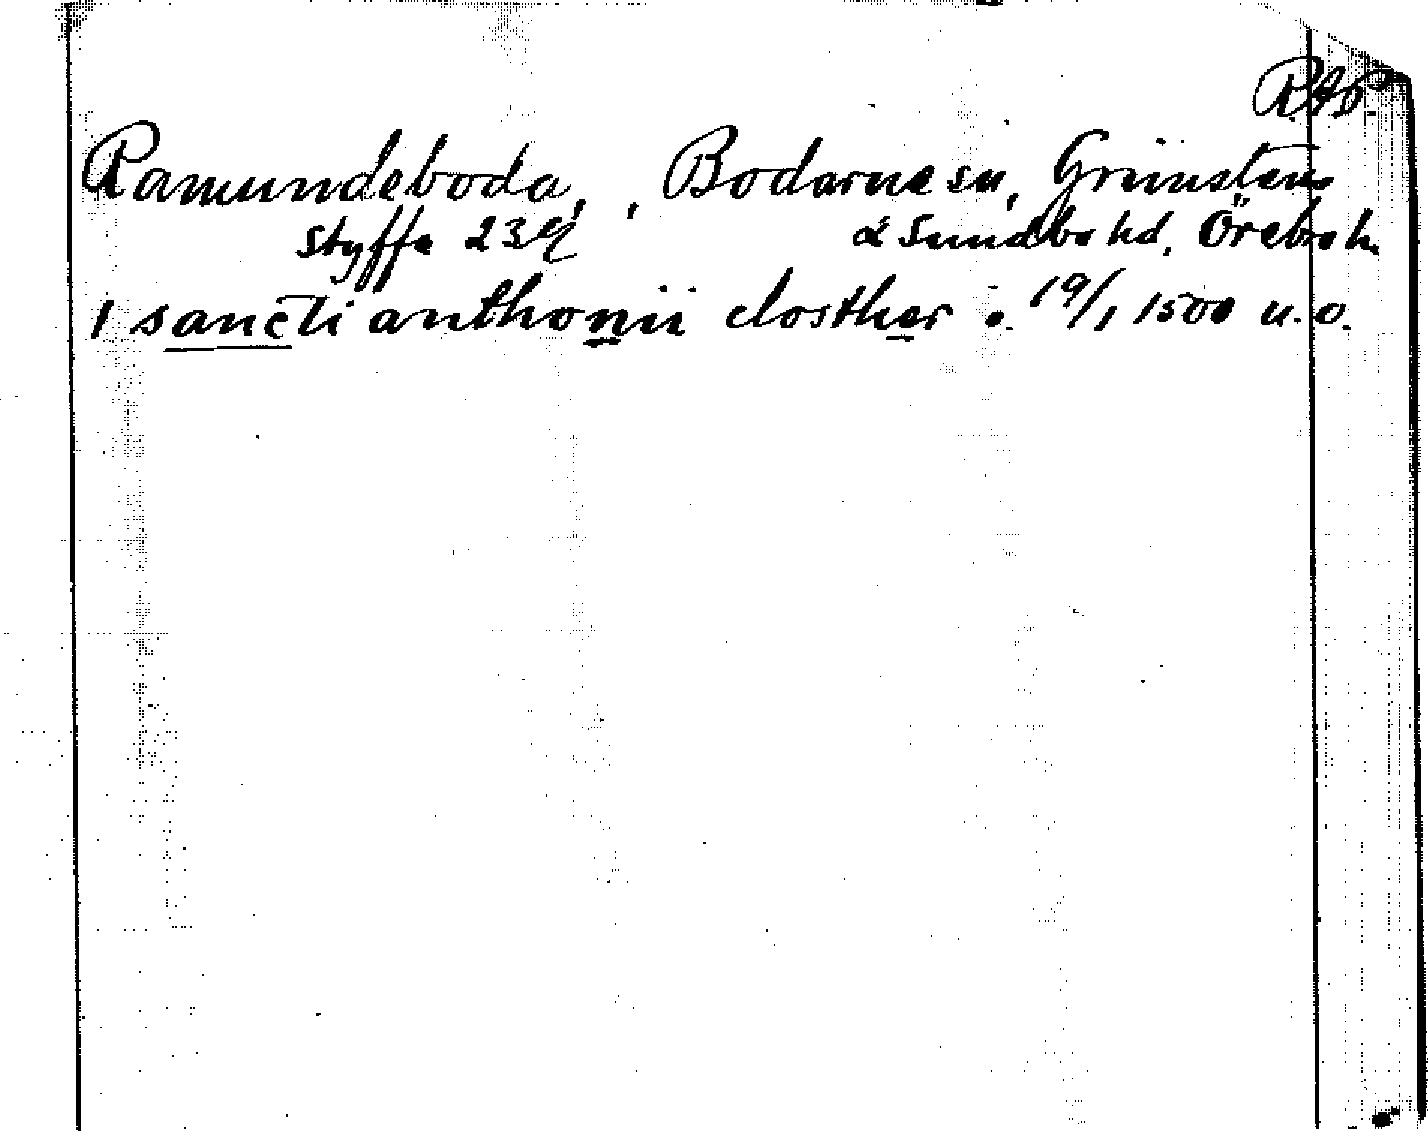 RAp.
Ramundeboda, , Bodarne sn, Grimstens
Styffe 239 & Sundbo hd, Örebo h.
I sancti anthonii closther . 19/1 1500 u. o.